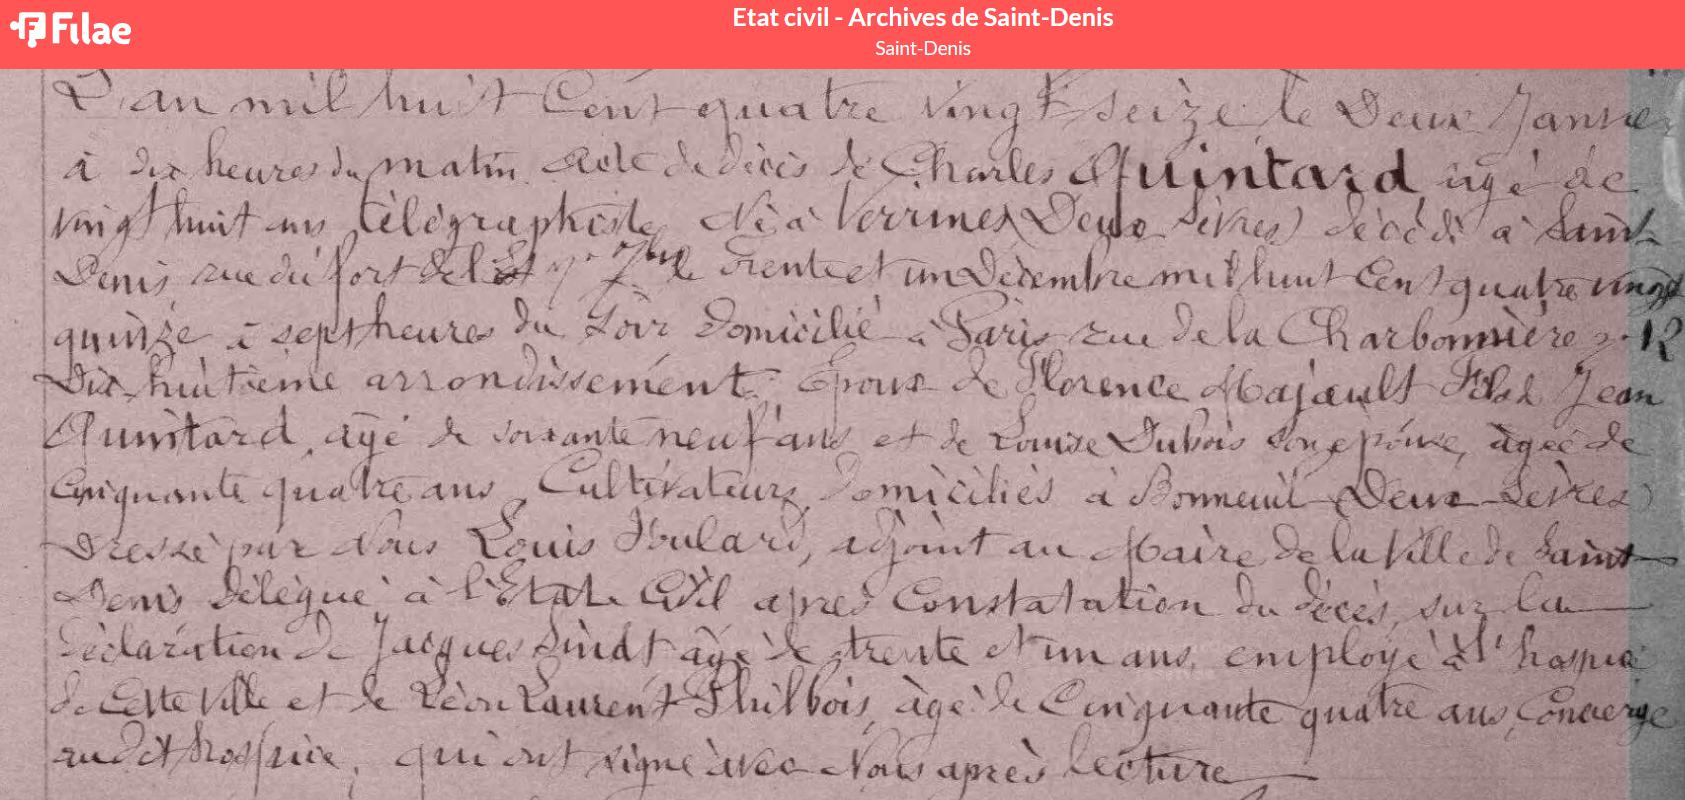 Filae
Etat civil - Archives de Saint-Denis
Saint-Denis
L'an mil huit Cent quatre vingt seize le Deux Janvier
à dix heures du matin. Acte de décès de Charles Quintard âgé de
vingt huit ans télégraphiste Né à Verrines (Deux Sèvres) décédé à Saint-
Denis, rue du fort de l'Est le trente et un Décembre mil huit Cent quatre vingt
quinze à sept heures du soir domicilié à Paris rue de la Charbonnière 12
Dix huitième arrondissement. Epoux de Florence Majault Fils de Jean
Quintard, âgé de soixante neuf ans et de Louise Dubois son épouse, âgée de
Cinquante quatre ans, Cultivateurs, domiciliés à Bonneuil (Deux-Sèvres)
Dressé par Nous Louis adjoint au Maire de la Ville de Saint-
Denis délégué à l'Etat Civil après Constatation du décès, sur la
déclaration de Jacques Lindt âgé de trente et un ans, employé à l'hospice
de Cette Ville et de Léon Laurent Philbois, âgé de Cinquante quatre ans, Concierge
audit hospice, qui ont signé avec Nous après lecture